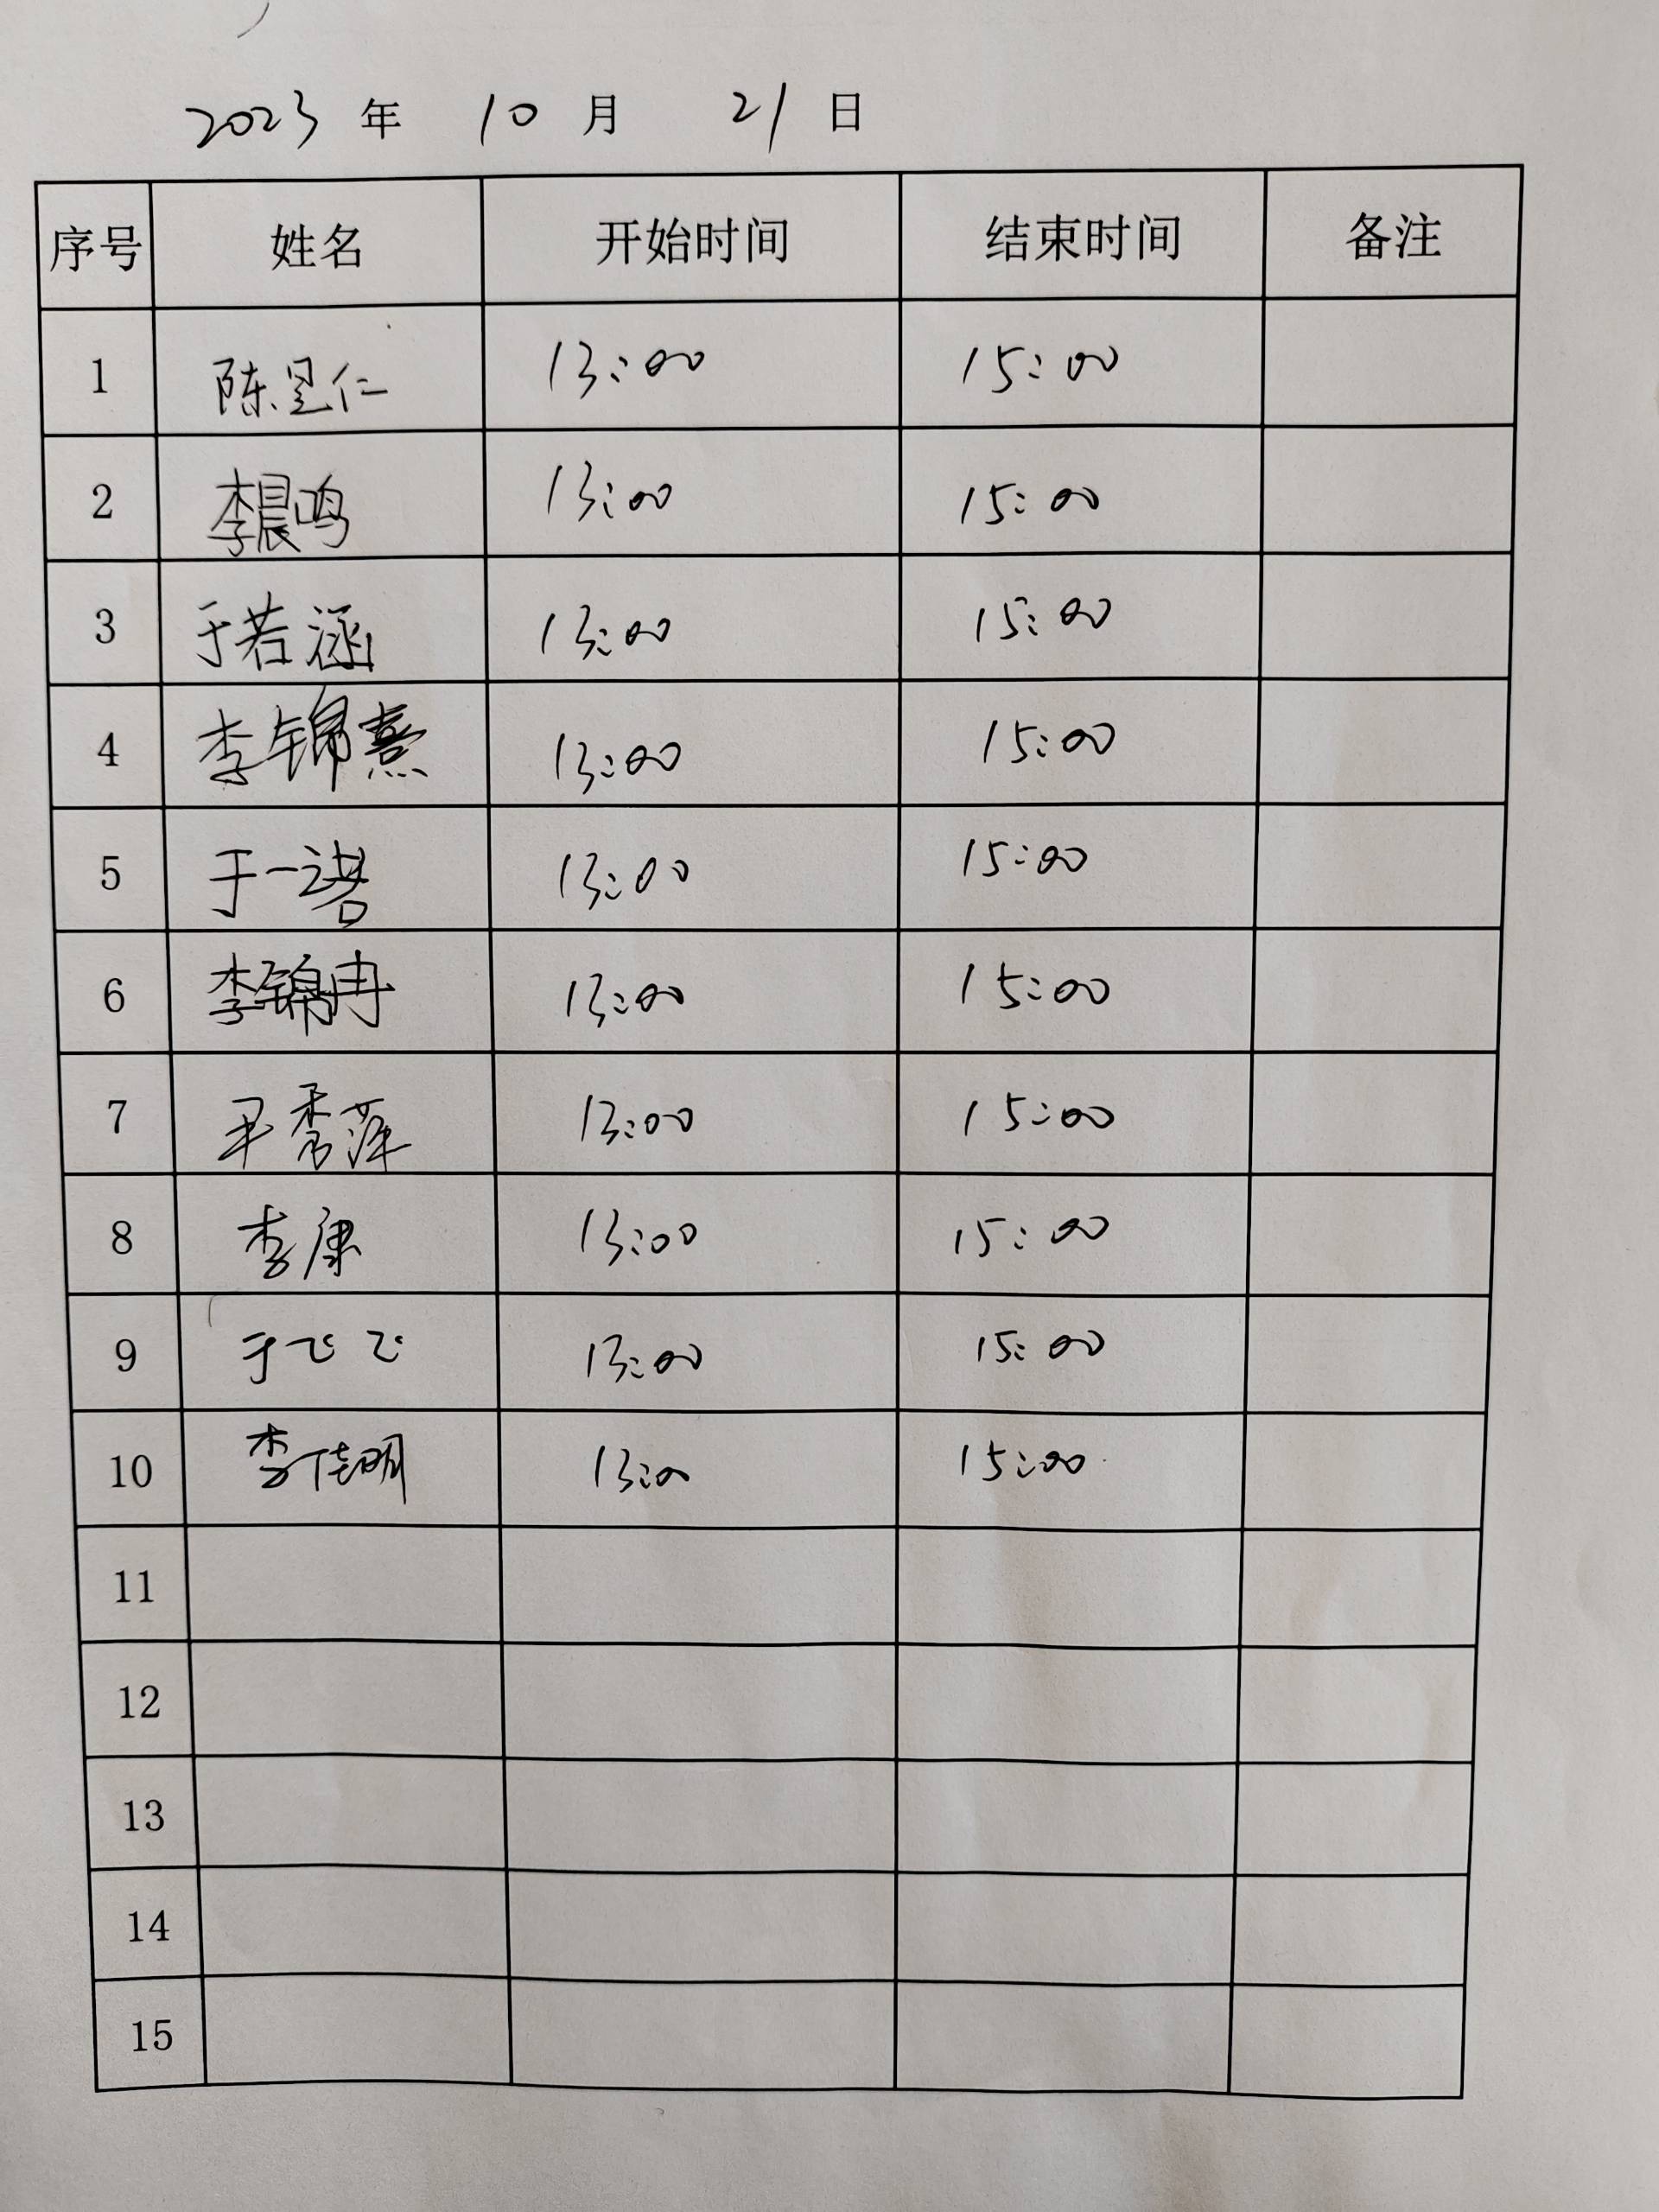 2023 年 10 月 21 日
序号 姓名 开始时间 结束时间 备注
1 陈昱仁 13:00 15:00
2 李晨鸣 13:00 15:00
3 于若涵 13:00 15:00
4 李锦熹 13:00 15:00
5 于一诺 13:00 15:00
6 李锦冉 13:00 15:00
7 尹秀萍 13:00 15:00
8 李康 13:00 15:00
9 于飞飞 13:00 15:00
10 李佳明 13:00 15:00
11
12
13
14
15